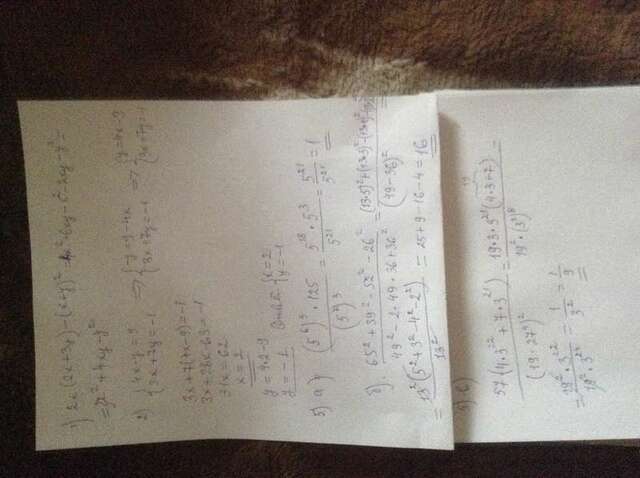 1) 2x(2x+3y)-(x+y)² = 4x²+6xy-x²-2xy-y² =
= 3x²+4xy-y²
2) {4x-y=9 {3x+7y=-1 => {-y=9-4x {3x+7y=-1 => {y=4x-9 {3x+7y=-1
3x+7(4x-9)=-1
3x+28x-63=-1
31x=62
x=2
y=4·2-9
y=-1 Ответ {x=2 {y=-1
5) а) (5⁶)³·125/(5⁷)³ = 5¹⁸·5³/5²¹ = 5²¹/5²¹ = 1
б). 65²+39²-52²-26²/49²-2·49·36+36² = (13·5)²+(13·3)²-(13·4)²-/(49-36)²
= 13²(5²+3²-4²-2²)/13² = 25+9-16-4 = 16
5) в)
57(4·3²²+7·3²¹)/(19·27⁴)² = 19·3·3²¹(4·3+7)/19²·(3³)⁸ =
19
= 19²·3²²/19²·3²⁴ = 1/3² = 1/9